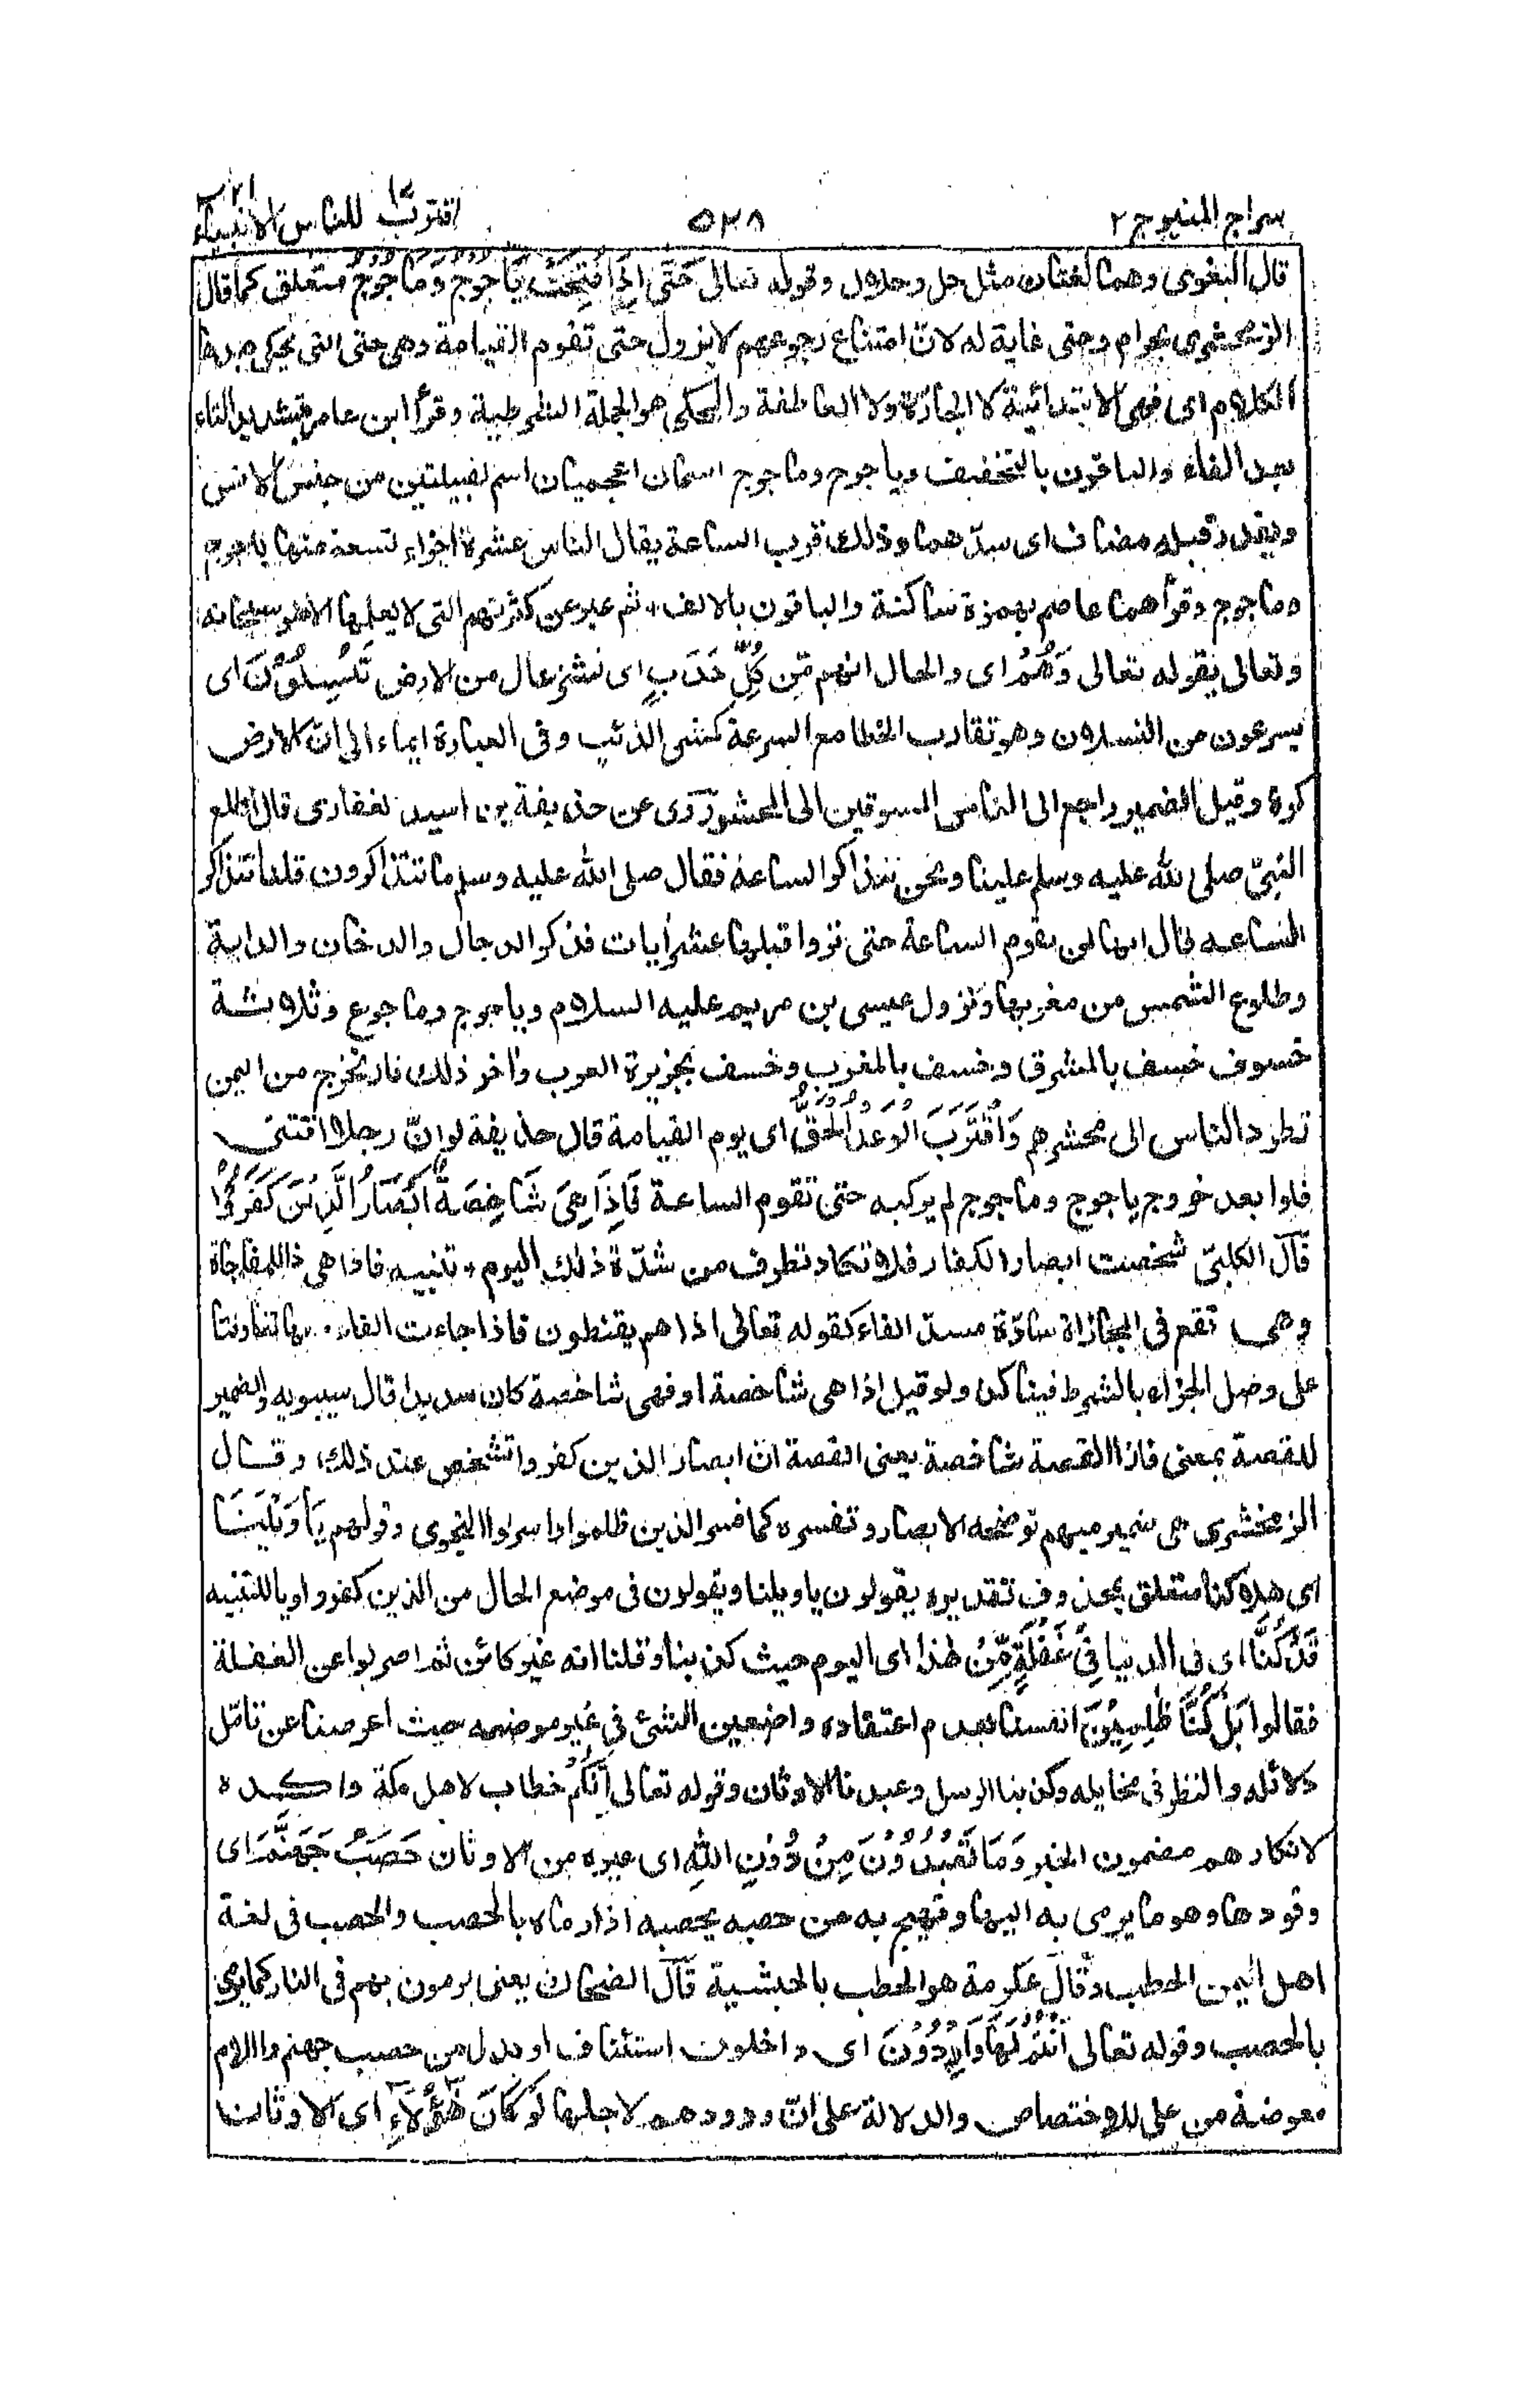 سراج المنير ج ٢ ٥٢٨ اقترب للناس ١٧ الانبياء ٢١
قال البغوى وهما لغتان مثل حل وحلال وقوله تعالى حَتّٰى اِذَا فُتِحَتْ يَاْجُوْجُ وَمَاْجُوْجُ متعلق كما قال
الزمخشرى بحرام وحتى غاية له لانّ امتناع رجوعهم لا يزول حتى تقوم القيامة وهى حتى التى يحكى بعدها
الكلام اى فهى الابتدائية لا الجارّة ولا العاطفة والمحكى هو الجملة الشرطية وقرأ ابن عامر بتشديد التاء
بعد الفاء والباقون بالتخفيف وياجوج وماجوج اسمان اعجميان اسم لقبيلتين من جنس الانس
ويقدر قبله مضاف اى سدّهما وذلك قرب الساعة يقال الناس عشرة اجزاء تسعة منها ياجوج
وماجوج وقرأهما عاصم بهمزة ساكنة والباقون بالالف، ثم عبر عن كثرتهم التى لا يعلمها الا هو سبحانه
وتعالى بقوله تعالى وَهُمْ اى والحال انهم مِّنْ كُلِّ حَدَبٍ اى نشز عال من الارض يَّنْسِلُوْنَ اى
يسرعون من النسلان وهو تقارب الخطا مع السرعة كمشى الذئب وفى العبارة ايماء الى انّ الارض
كرة وقيل الضمير راجع الى الناس المسوقين الى المحشر رَوى عن حذيفة بن اسيد الغفارى قال اطلع
النبىّ صلى الله عليه وسلم علينا ونحن نتذاكر الساعة فقال صلى الله عليه وسلم ما تتذاكرون قلنا نتذاكر
الساعه قال انها لن تقوم الساعة حتى تروا قبلها عشر ايات فذكر الدجال والدخان والدابة
وطلوع الشمس من مغربها ونزول عيسى بن مريم عليه السلام وياجوج وماجوج وثلاثة
خسوف خسف بالمشرق وخسف بالمغرب وخسف بجزيرة العرب واٰخر ذلك نار تخرج من اليمن
تطرد الناس الى محشرهم وَاقْتَرَبَ الْوَعْدُ الْحَقُّ اى يوم القيامة قال حذيفة لو انّ رجلا اقتنى
فلوا بعد خروج ياجوج وماجوج لم يركبه حتى تقوم الساعة فَاِذَا هِىَ شَاخِصَةٌ اَبْصَارُ الَّذِيْنَ كَفَرُوْا
قال الكلبىّ شخصت ابصار الكفار فلا تكاد تطرف من شدّة ذلك اليوم، تنبيه فاذا هى اذا للمفاجاة
وهى تقع فى المجازاة سادّة مسدّ الفاء كقوله تعالى اذا هم يقنطون فاذا جاءت الفاء معها تعاونتا
على وصل الجزاء بالشرط فيتاكد ولو قيل اذا هى شاخصة او فهى شاخصة كان سديدا قال سيبويه والضمير
للقصة بمعنى فاذا القصة شاخصة يعنى القصة انّ ابصار الذين كفروا تشخص عند ذلك، وقال
الزمخشرى هى ضمير مبهم توضحه الابصار وتفسره كما فسر الذين ظلموا واسروا النجوى وقولهم يَا وَيْلَنَا
اى هلاكنا متعلق بمحذوف تقديره يقولون ياويلنا ويقولون فى موضع الحال من الذين كفروا ويا للتنبيه
قَدْ كُنَّا اى فى الدنيا فِىْ غَفْلَةٍ مِّنْ هٰذَا اى اليوم حيث كذبنا وقلنا انه غير كائن ثم اضربوا عن الغفلة
فقالوا بَلْ كُنَّا ظٰلِمِيْنَ انفسنا بعدم اعتقاده واضعين الشئ فى غير موضعه حيث اعرضنا عن تامّل
دلائله والنظر فى مخايله وكذبنا الرسل وعبدنا الاوثان وقوله تعالى اِنَّكُمْ خطاب لاهل مكة واكده
لانكارهم مضمون الخبر وَمَا تَعْبُدُوْنَ مِنْ دُوْنِ اللّٰهِ اى غيره من الاوثان حَصَبُ جَهَنَّمَ اى
وقودها وهو ما يرمى به اليها وتهيج به من حصبه يحصبه اذا رماه بالحصب والحصب فى لغة
اهل اليمن الحطب وقال عكرمة هو الحطب بالحبشية قال الضحاك يعنى يرمون بهم فى النار كما يرمى
بالحصب وقوله تعالى اَنْتُمْ لَهَا وَارِدُوْنَ اى داخلون استئناف او بدل من حصب جهنم واللام
معوضة من على للاختصاص والدلالة على انّ ورودهم لاجلها لَوْ كَانَ هٰٓؤُلَآءِ اى الاوثان